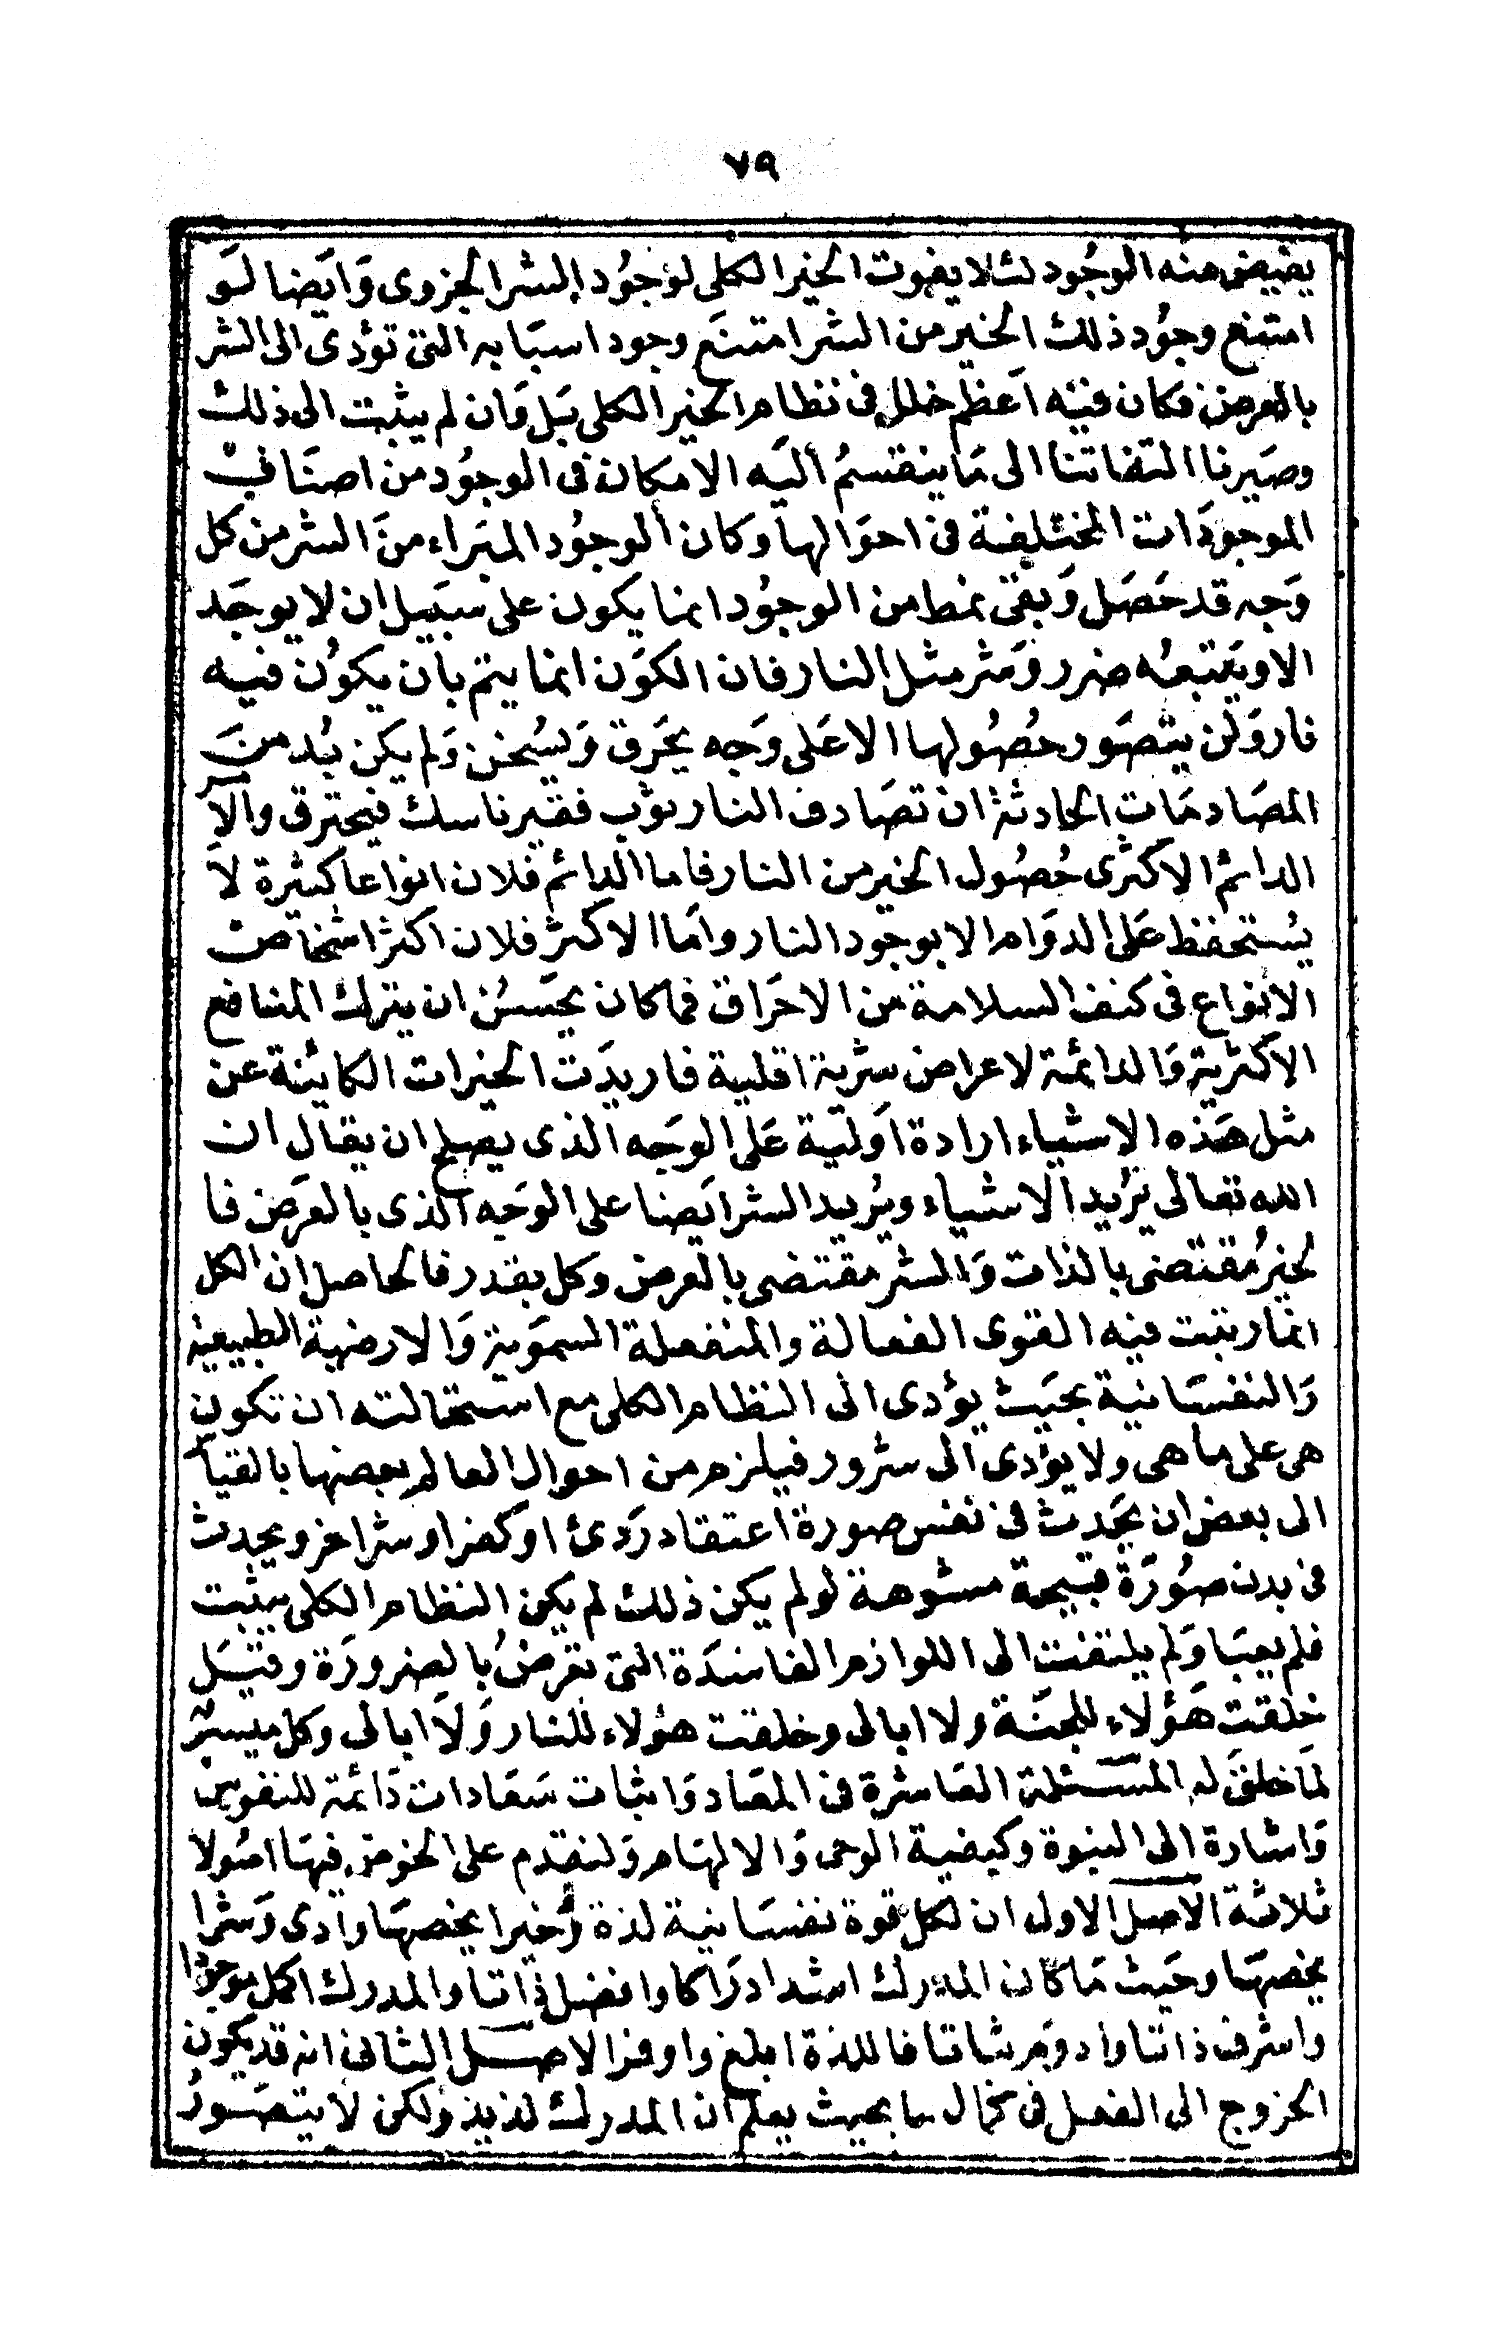 ٧٩
يفيض منه الوجود لئلا يفوت الخير الكلى لوجود الشر الجزوى وايضا لو
امتنع وجود ذلك الخير من الشر امتنع وجود اسبابه التى تؤدى الى الشر
بالعرض فكان فيه اعظم خلل فى نظام الخير الكلى بل وان لم يثبت الى ذلك
وصيرنا التفاتنا الى ما ينقسم اليه الامكان فى الوجود من اصناف
الموجودات المختلفة فى احوالها وكان الوجود المبراء من الشر من كل
وجه قد حصل وبقى نمط من الوجود انما يكون على سبيل ان لا يوجد
الا ويتبعه ضرر وشر مثل النار فان الكون انما يتم بان يكون فيه
نار ولن يتصور حصولها الا على وجه يحرق ويسخن ولم يكن بد من
المصادمات الحادثة ان تصادف النار ثوب فقير ناسك فيحترق والامر
الدائم الاكثرى حصول الخير من النار فاما الدائم فلان انواعا كثيرة لا
يستحفظ على الدوام الا بوجود النار واما الاكثر فلان اكثر اشخاص
الانواع فى كنف السلامة من الاحراق فما كان يحسن ان يترك المنافع
الاكثرية والدائمة لاعراض شرية اقلية فاريدت الخيرات الكائنة عن
مثل هذه الاشياء ارادة اولية على الوجه الذى يصلح ان يقال ان
الله تعالى يريد الاشياء ويريد الشر ايضا على الوجه الذى بالعرض فا
لخير مقتضى بالذات والشر مقتضى بالعرض وكل بقدر فالحاصل ان الكل
انما رتبت فيه القوى الفعالة والمنفعلة السموية والارضية الطبيعية
والنفسانية بحيث يؤدى الى النظام الكلى مع استحالته ان تكون
هى على ما هى ولا يؤدى الى شرور فيلزم من احوال العالم بعضها بالقياس
الى بعض ان يحدث فى نفس صورة اعتقاد ردئ او كفر او شر اخر ويحدث
فى بدن صورة قبيحة مشوهة لو لم يكن ذلك لم يكن النظام الكلى يثبت
فلم يعبا ولم يلتفت الى اللوازم الفاسدة التى تعرض بالضرورة وقيل
خلقت هؤلاء للجنة ولا ابالى وخلقت هؤلاء للنار ولا ابالى وكل ميسر
لما خلق له المسئلة العاشرة فى المعاد واثبات سعادات دائمة للنفوس
واشارة الى النبوة وكيفية الوحى والالهام ولنقدم على الخوض فيها اصولا
ثلاثة الاصل الاول ان لكل قوة نفسانية لذة وخيرا يخصها واذى وشرا
يخصها وحيث ما كان المدرك اشد ادراكا وافضل ذاتا والمدرك اكمل موجودا
واشرف ذاتا وادوم ثباتا فاللذة ابلغ واوفر الاصل الثانى انه قد يكون
الخروج الى الفعل فى كمال ما بحيث يعلم ان المدرك لذيذ ولكن لا يتصور